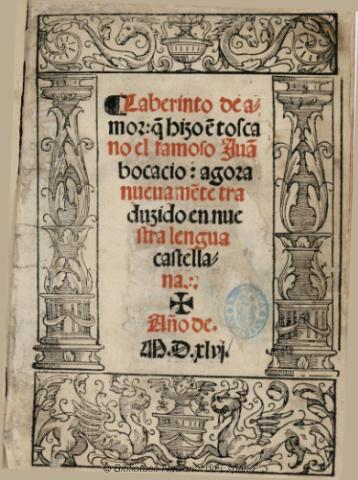 ¶Laberinto de a-
mor: q̃ hizo ẽ tosca
no el famoso Juã
bocacio: agora
nueuamẽte tra
duzido en nue
stra lengua
castella-
na.:
✠
Año de.
M.D.xlvj.
© Biblioteca Nacional de España